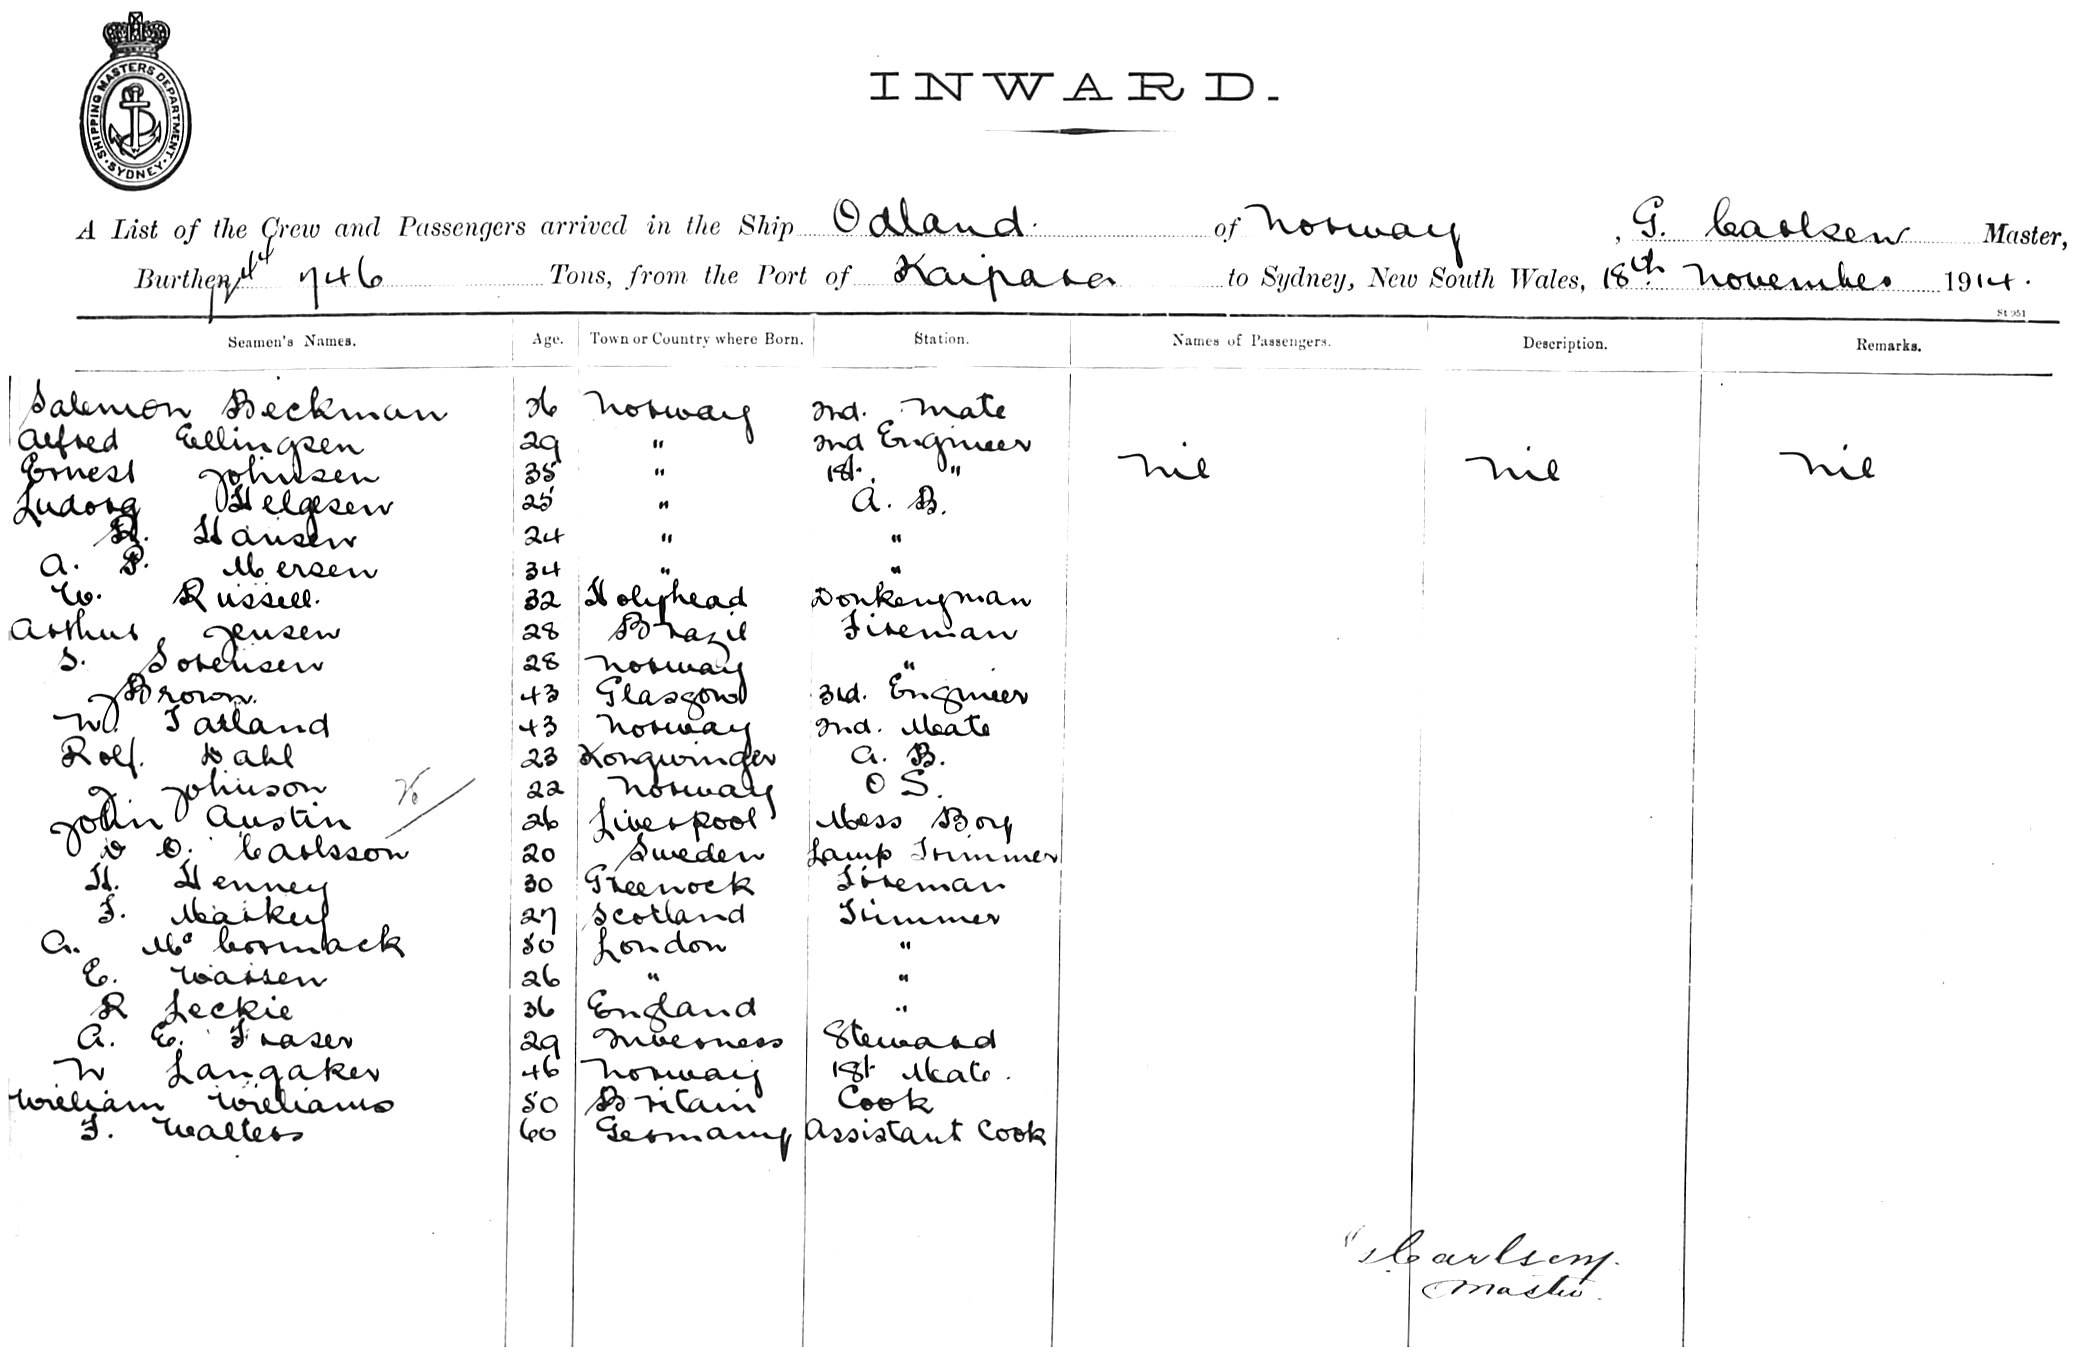 SHIPPING MASTERS DEPARTMENT · SYDNEY ·
INWARD.
A List of the Crew and Passengers arrived in the Ship Odland of Norway, G. Carlsen Master,
Burthen 746 Tons, from the Port of Kaipara to Sydney, New South Wales, 18th November 1914.
St 951
Seamen's Names. Age. Town or Country where Born. Station. Names of Passengers. Description. Remarks.
Salemon Beckman 26 Norway 2nd. Mate
Alfred Ellingsen 29 " 2nd Engineer
Ernest Johnsen 35 " 1st. " Nil Nil Nil
Ludovg Helgesen 25 " A. B.
Hansen 24 " "
A. P. Mersen 34 " "
W. Russell. 32 Holyhead Donkeyman
Arthur Jensen 28 Brazil Fireman
S. Sorensen 28 Norway "
J Brown. 43 Glasgow 3rd. Engineer
N. Tatland 43 Norway 2nd. Mate
Rolf. Dahl 23 Kongwinger A. B.
J Johnson 22 Norway O S.
John Austin 26 Liverpool Mess Boy
O. Carlsson 20 Sweden Lamp Trimmer
H. Henney 30 Greenock Fireman
F. Markey 27 Scotland Trimmer
A. McCormack 50 London "
E. Warren 26 " "
R Leckie 36 England "
A. E. Fraser 29 Inverness Steward
N Langaker 46 Norway 1st Mate.
William Williams 50 Britain Cook
F. Walters 60 Germany Assistant Cook
Carlsen
Master.